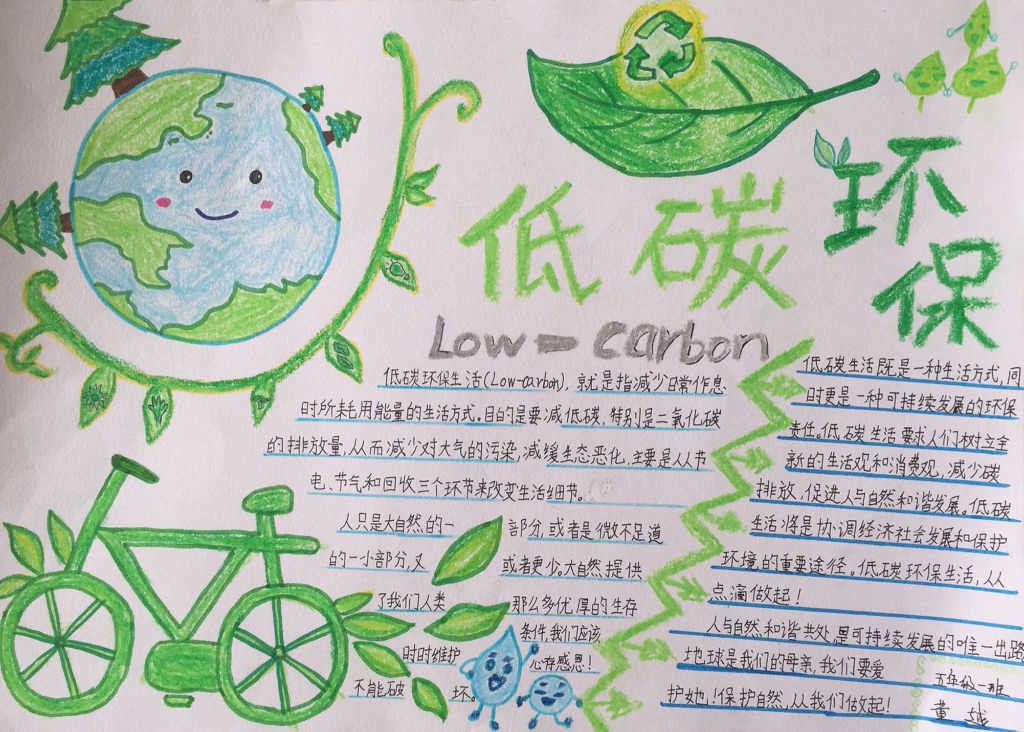 低碳
环
保
Low-carbon
低碳环保生活(Low-carbon), 就是指减少日常作息
时所耗用能量的生活方式。目的是要减低碳,特别是二氧化碳
的排放量,从而减少对大气的污染,减缓生态恶化,主要是从节
电、节气和回收三个环节来改变生活细节。
人只是大自然的一 部分,或者是微不足道
的一小部分,又 或者更少。大自然提供
了我们人类 那么多优厚的生存
条件,我们应该
时时维护 心存感恩!
不能破 坏。
低碳生活既是一种生活方式,同
时更是一种可持续发展的环保
责任。低碳生活要求人们树立全
新的生活观和消费观,减少碳
排放,促进人与自然和谐发展。低碳
生活将是协调经济社会发展和保护
环境的重要途径。低碳环保生活,从
点滴做起!
人与自然和谐共处是可持续发展的唯一出路
地球是我们的母亲,我们要爱
护她!保护自然,从我们做起!
五年级一班
黄越